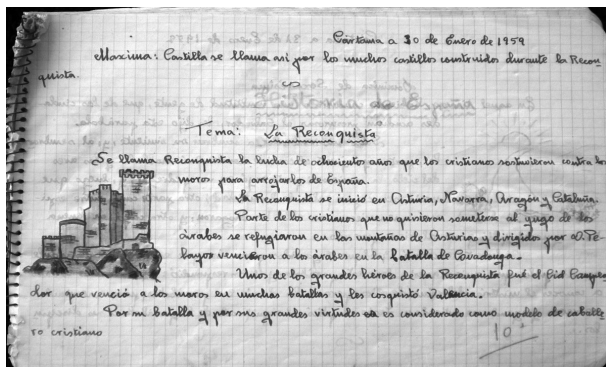 Cártama a 30 de Enero de 1959
Maxima: Castilla se llama asi por los muchos castillos construidos durante la Recon-
quista.
Tema: La Reconquista
Se llama Reconquista la lucha de ochociento años que los cristiano sostuvieron contra los
moros para arrojarlos de España.
La Reconquista se inició en Asturia, Navarra, Aragón y Cataluña.
Parte de los cristianos que no quisieron someterse al yugo de los
árabes se refugiaron en las montañas de Asturias y dirigidos por D. Pe-
layos vencieron a los árabes en la batalla de Covadonga.
Unos de los grandes héroes de la Reconquista fué el Cid Campea-
dor que venció a los moros en muchas batallas y les cosquistó Valencia.
Por su batalla y por sus grandes virtudes es considerado como modelo de caballe-
ro cristiano
10